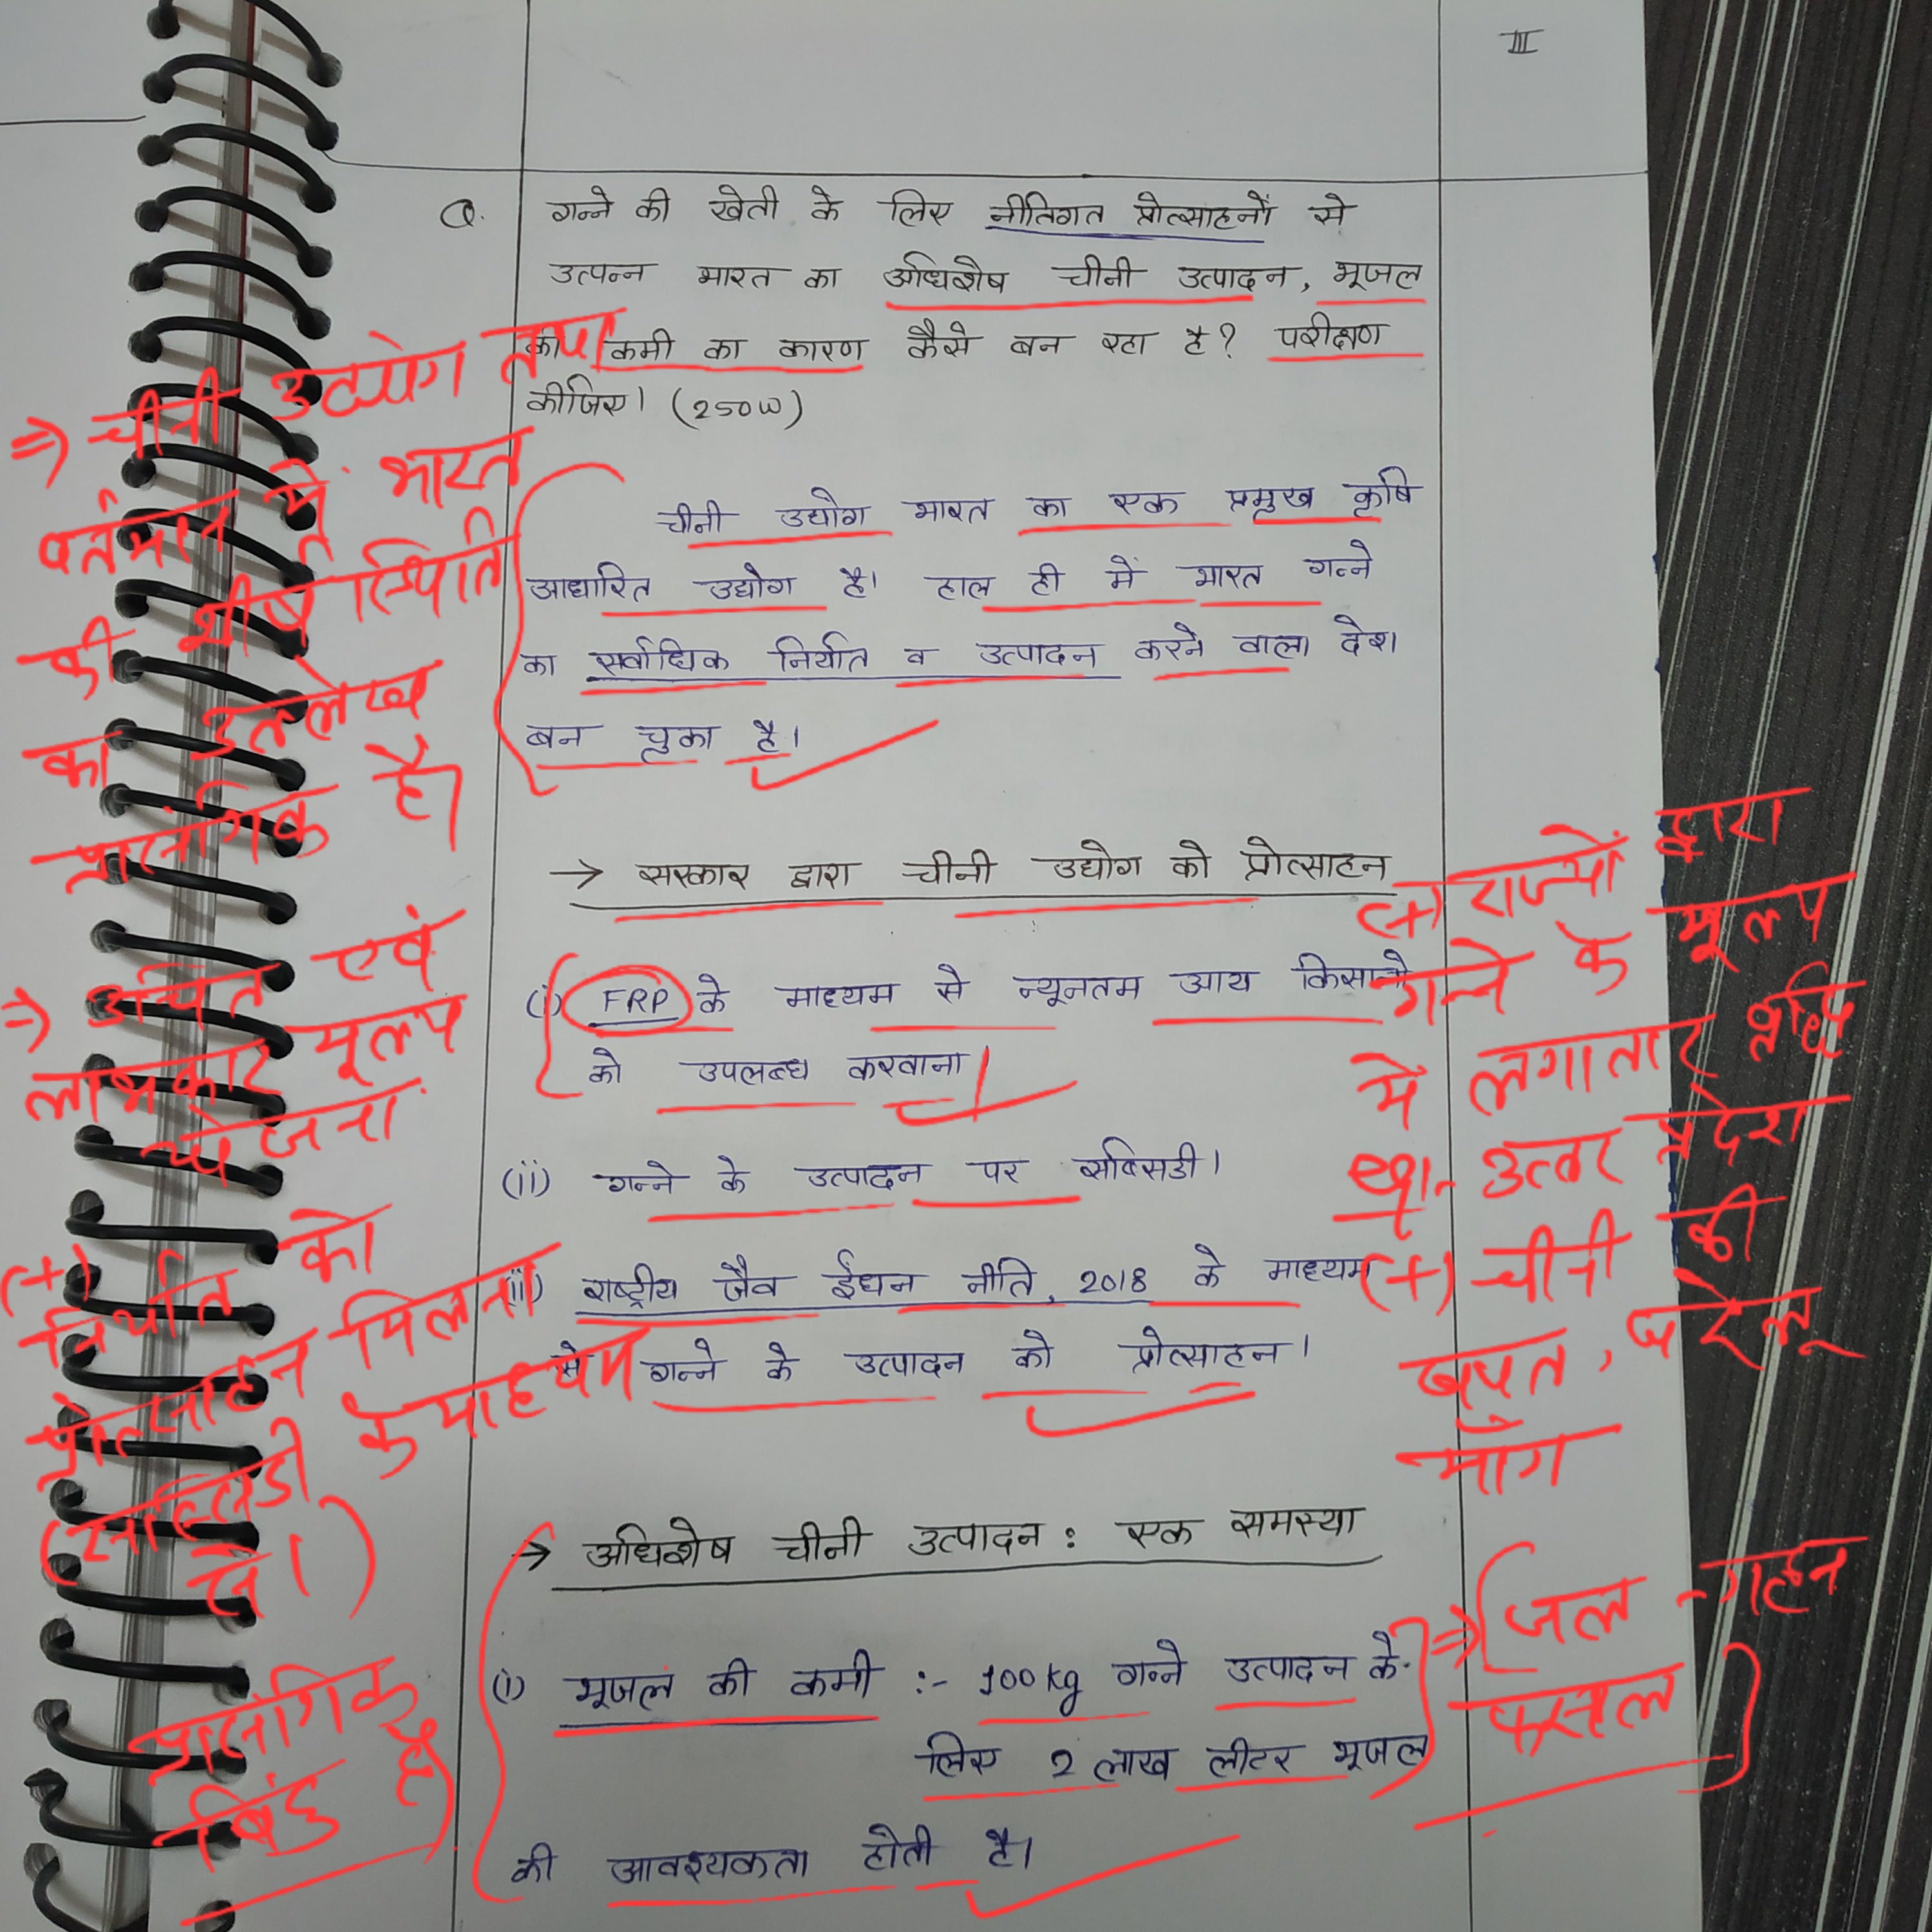 III
Q. गन्ने की खेती के लिए नीतिगत प्रोत्साहनों से
उत्पन्न भारत का अधिशेष चीनी उत्पादन, भूजल
की कमी का कारण कैसे बन रहा है? परीक्षण
कीजिए। (250W)
⇒ चीनी उद्योग तथा
वर्तमान में भारत
की शीर्ष स्थिति
का उल्लेख
प्रासंगिक है।
चीनी उद्योग भारत का एक प्रमुख कृषि
आधारित उद्योग है। हाल ही में भारत गन्ने
का सर्वाधिक निर्यात व उत्पादन करने वाला देश
बन चुका है।
→ सरकार द्वारा चीनी उद्योग को प्रोत्साहन
(i) FRP के माध्यम से न्यूनतम आय किसानो
को उपलब्ध करवाना।
(ii) गन्ने के उत्पादन पर सब्सिडी।
(iii) राष्ट्रीय जैव ईंधन नीति, 2018 के माध्यम
से गन्ने के उत्पादन को प्रोत्साहन।
⇒ उचित एवं
लाभकार मूल्य
योजना
(+) निर्यात को
प्रोत्साहन मिलना
(सब्सिडी के माध्यम
से।)
(+) राज्यों द्वारा
गन्ने के मूल्य
में लगातार वृद्धि
उत्तर प्रदेश
(+) चीनी की
खपत, घरेलू
माँग
→ अधिशेष चीनी उत्पादन : एक समस्या
(i) भूजल की कमी :- 100kg गन्ने उत्पादन के
लिए 2 लाख लीटर भूजल
की आवश्यकता होती है।
⇒ (जल-गहन
फसल)
प्रासंगिक
बिंदु है